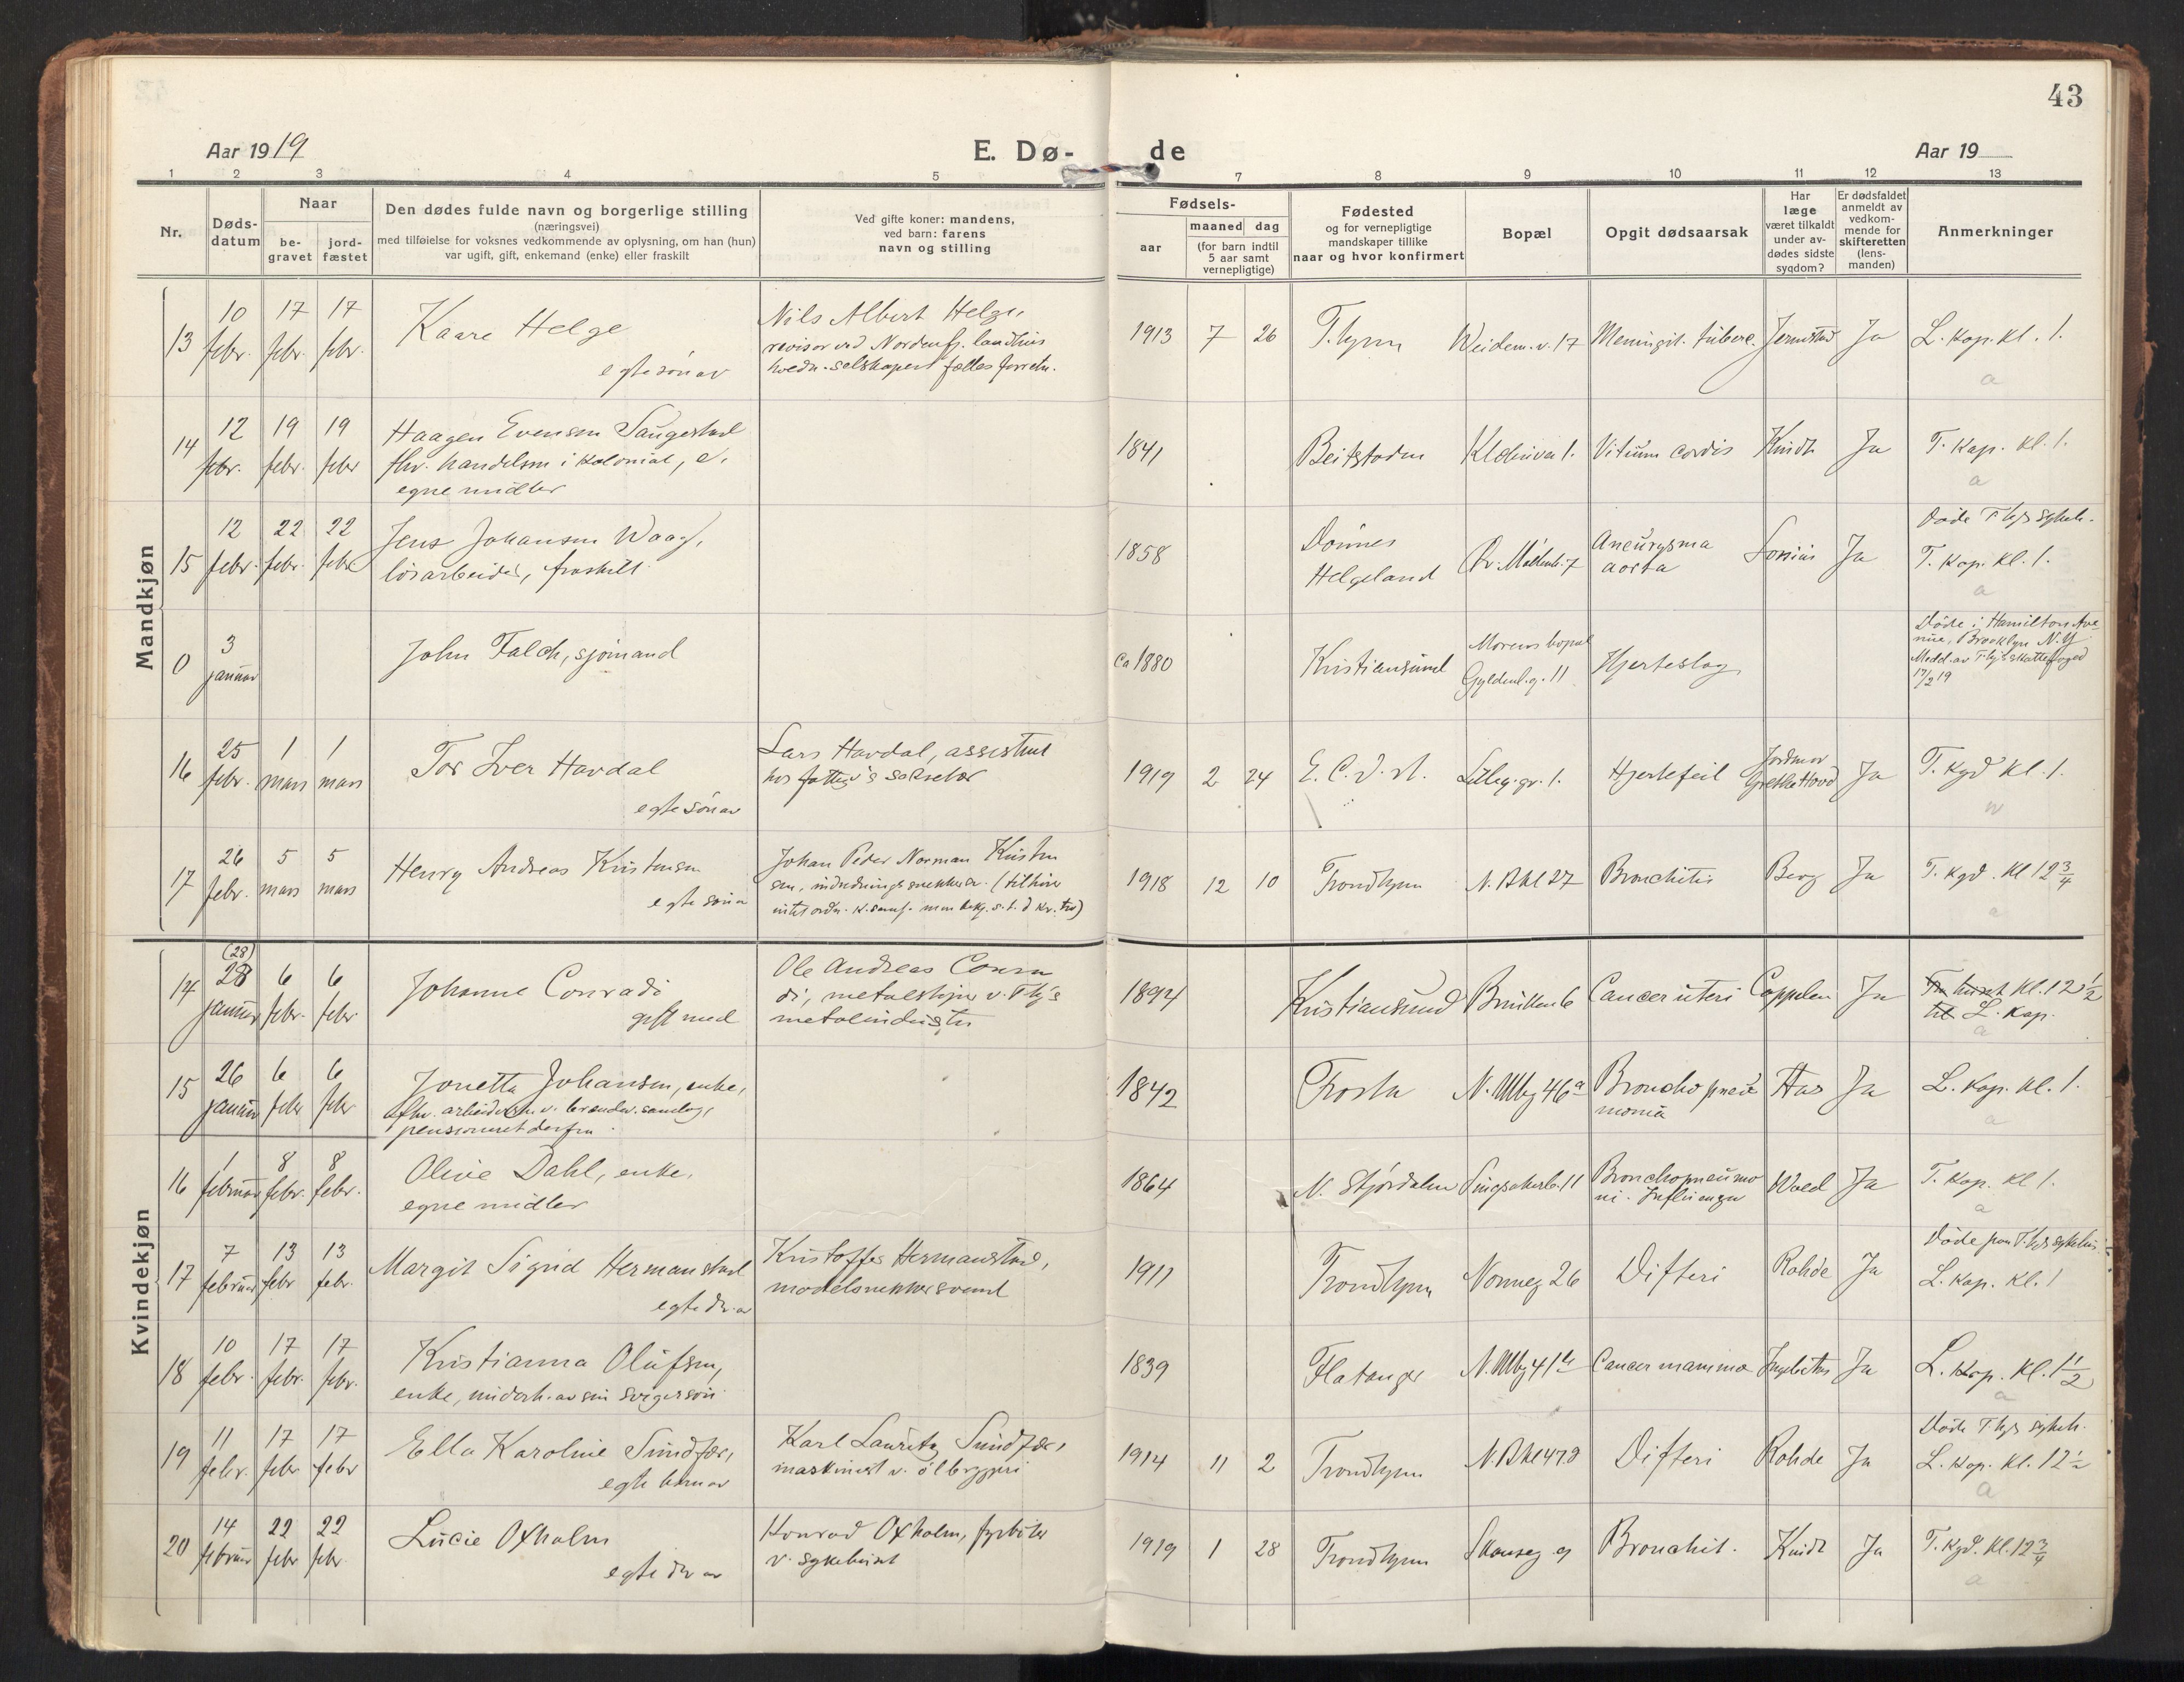 43
Aar 1919
E. Dø-
de
Aar 19
1 2 3 4 5 7 8 9 10 11 12 13
Nr.
Døds-
datum
Naar
be-
gravet
jord-
fæstet
Den dødes fulde navn og borgerlige stilling
(næringsvei)
med tilføielse for voksnes vedkommende av oplysning, om han (hun)
var ugift, gift, enkemand (enke) eller fraskilt
Ved gifte koner: mandens,
ved barn: farens
navn og stilling
Fødsels-
aar
maaned dag
(for barn indtil
5 aar samt
vernepligtige)
Fødested
og for vernepligtige
mandskaper tillike
naar og hvor konfirmert
Bopæl
Opgit dødsaarsak
Har
læge
været tilkaldt
under av-
dødes sidste
sygdom?
Er dødsfaldet
anmeldt av
vedkom-
mende for
skifteretten
(lens-
manden)
Anmerkninger
Mandkjøn
13
10 febr.
17 febr.
17 febr.
Kaare Helge
egte søn av
Nils Albert Helge,
revisor ved Nordenfj. landhus
selskapers fælles forretn.
1913 7 26
T.hjem
Weidem.v. 17
Meningit. tuberc.
Ja
L. Kap. kl. 1.
a
14
12 febr.
19 febr.
19 febr
Haagen Evensen Saugestad
fhv. handelsm i kolonial, e.
egne midler
1841
Beitstaden
Vitium cordis
Kindt
Ja
T. Kap. kl. 1.
a
15
12 febr.
22 febr.
22 febr
Jens Johansen Waag,
løsarbeider, fraskilt.
1858
Dønnes
Helgeland
Aneurysma
aorta
Ja
Døde Thjs sykeh.
T. Kap. kl. 1.
a
0
3
januar
John Falch, sjømand
ca 1880
Kristiansund
Morens bopæl
Gyldenl.g. 11
Hjerteslag
Døde i Hamilton Ave
nue, Brooklyn N.Y.
Medd. av Thjs skattefoged
17/2 19
16
25 febr.
1 mars
1 mars
Tor Iver Havdal
egte søn av
Lars Havdal, assistent
hos fattigv's sekretær
1919 2 24
E. C. D. st.
Hjertefeil
Jordmor
Grethe Hovd
Ja
T. Kgd kl. 1.
17
26 febr.
5 mars
5 mars
Henry Andreas Kristensen
egte søn a
Johan Peder Norman Kristen
sen, indredningssnekker a. (tilhører
1918 12 10
Trondhjem
N. Bkl 27
Bronchitis
Berg
Ja
T. Kgd. Kl 12 3/4
a
Kvindekjøn
14
(28)
28
januar
6 febr.
6 febr
Johanne Conradi
gift med
Ole Andreas Conra
di, metalsliper v. Thj's
metalindustri
1894
Kristiansund
Cancer uteri
Cappelen
Ja
Fra huset kl. 12 1/2
til L. Kap.
a
15
26
januar
6 febr
6 febr
Jonetta Johansen, enke,
fhv. arbeiderske v. brændev. samlag,
pensioneret derfra.
1842
Frosta
N. Allbg 46 a
Bronchopneu
monia
Ja
L. Kap. kl. 1.
a
16
1
februar
8 febr.
8 febr.
Olive Dahl, enke,
egne midler
1864
N. Stjørdalen
Singsakerb. 11
Bronchopneumo
ni. Influenza
Ja
T. Kap. kl 1.
a
17
7
februar
13 febr
13 febr.
Margit Sigrid Hermanstad
egte dr. a
Kristoffer Hermanstad,
modelsnekkersvend
1911
Trondhjem
Nonneg 26
Difteri
Rohde
Ja
Døde paa Thjs sykehus
L. Kap. kl. 1
18
10 febr.
17 febr.
17 febr.
Kristianna Olufsen,
enke, underh. av sin svigersøn
1839
Flatanger
N. Allbg 41 b
Cancer mammæ
Ja
L. Kap. kl. 1 1/2
a
19
11 febr.
17 febr
17 febr
Ella Karoline Sundfær,
egte barn av
Karl Lauritz Sundfær,
maskinist v. ølbryggeri
1914 11 2
Trondhjem
Difteri
Rohde
Ja
Døde Thjs sykeh.
L. Kap. kl. 12 1/2
a
20
14
februar
22 febr
22 febr.
Lucie Oxholm
egte dr av
Konrad Oxholm, fyrbøter
v. sykehuset
1919 1 28
Trondhjem
Bronchit.
Kindt
Ja
T. Kgd. kl. 12 3/4
a